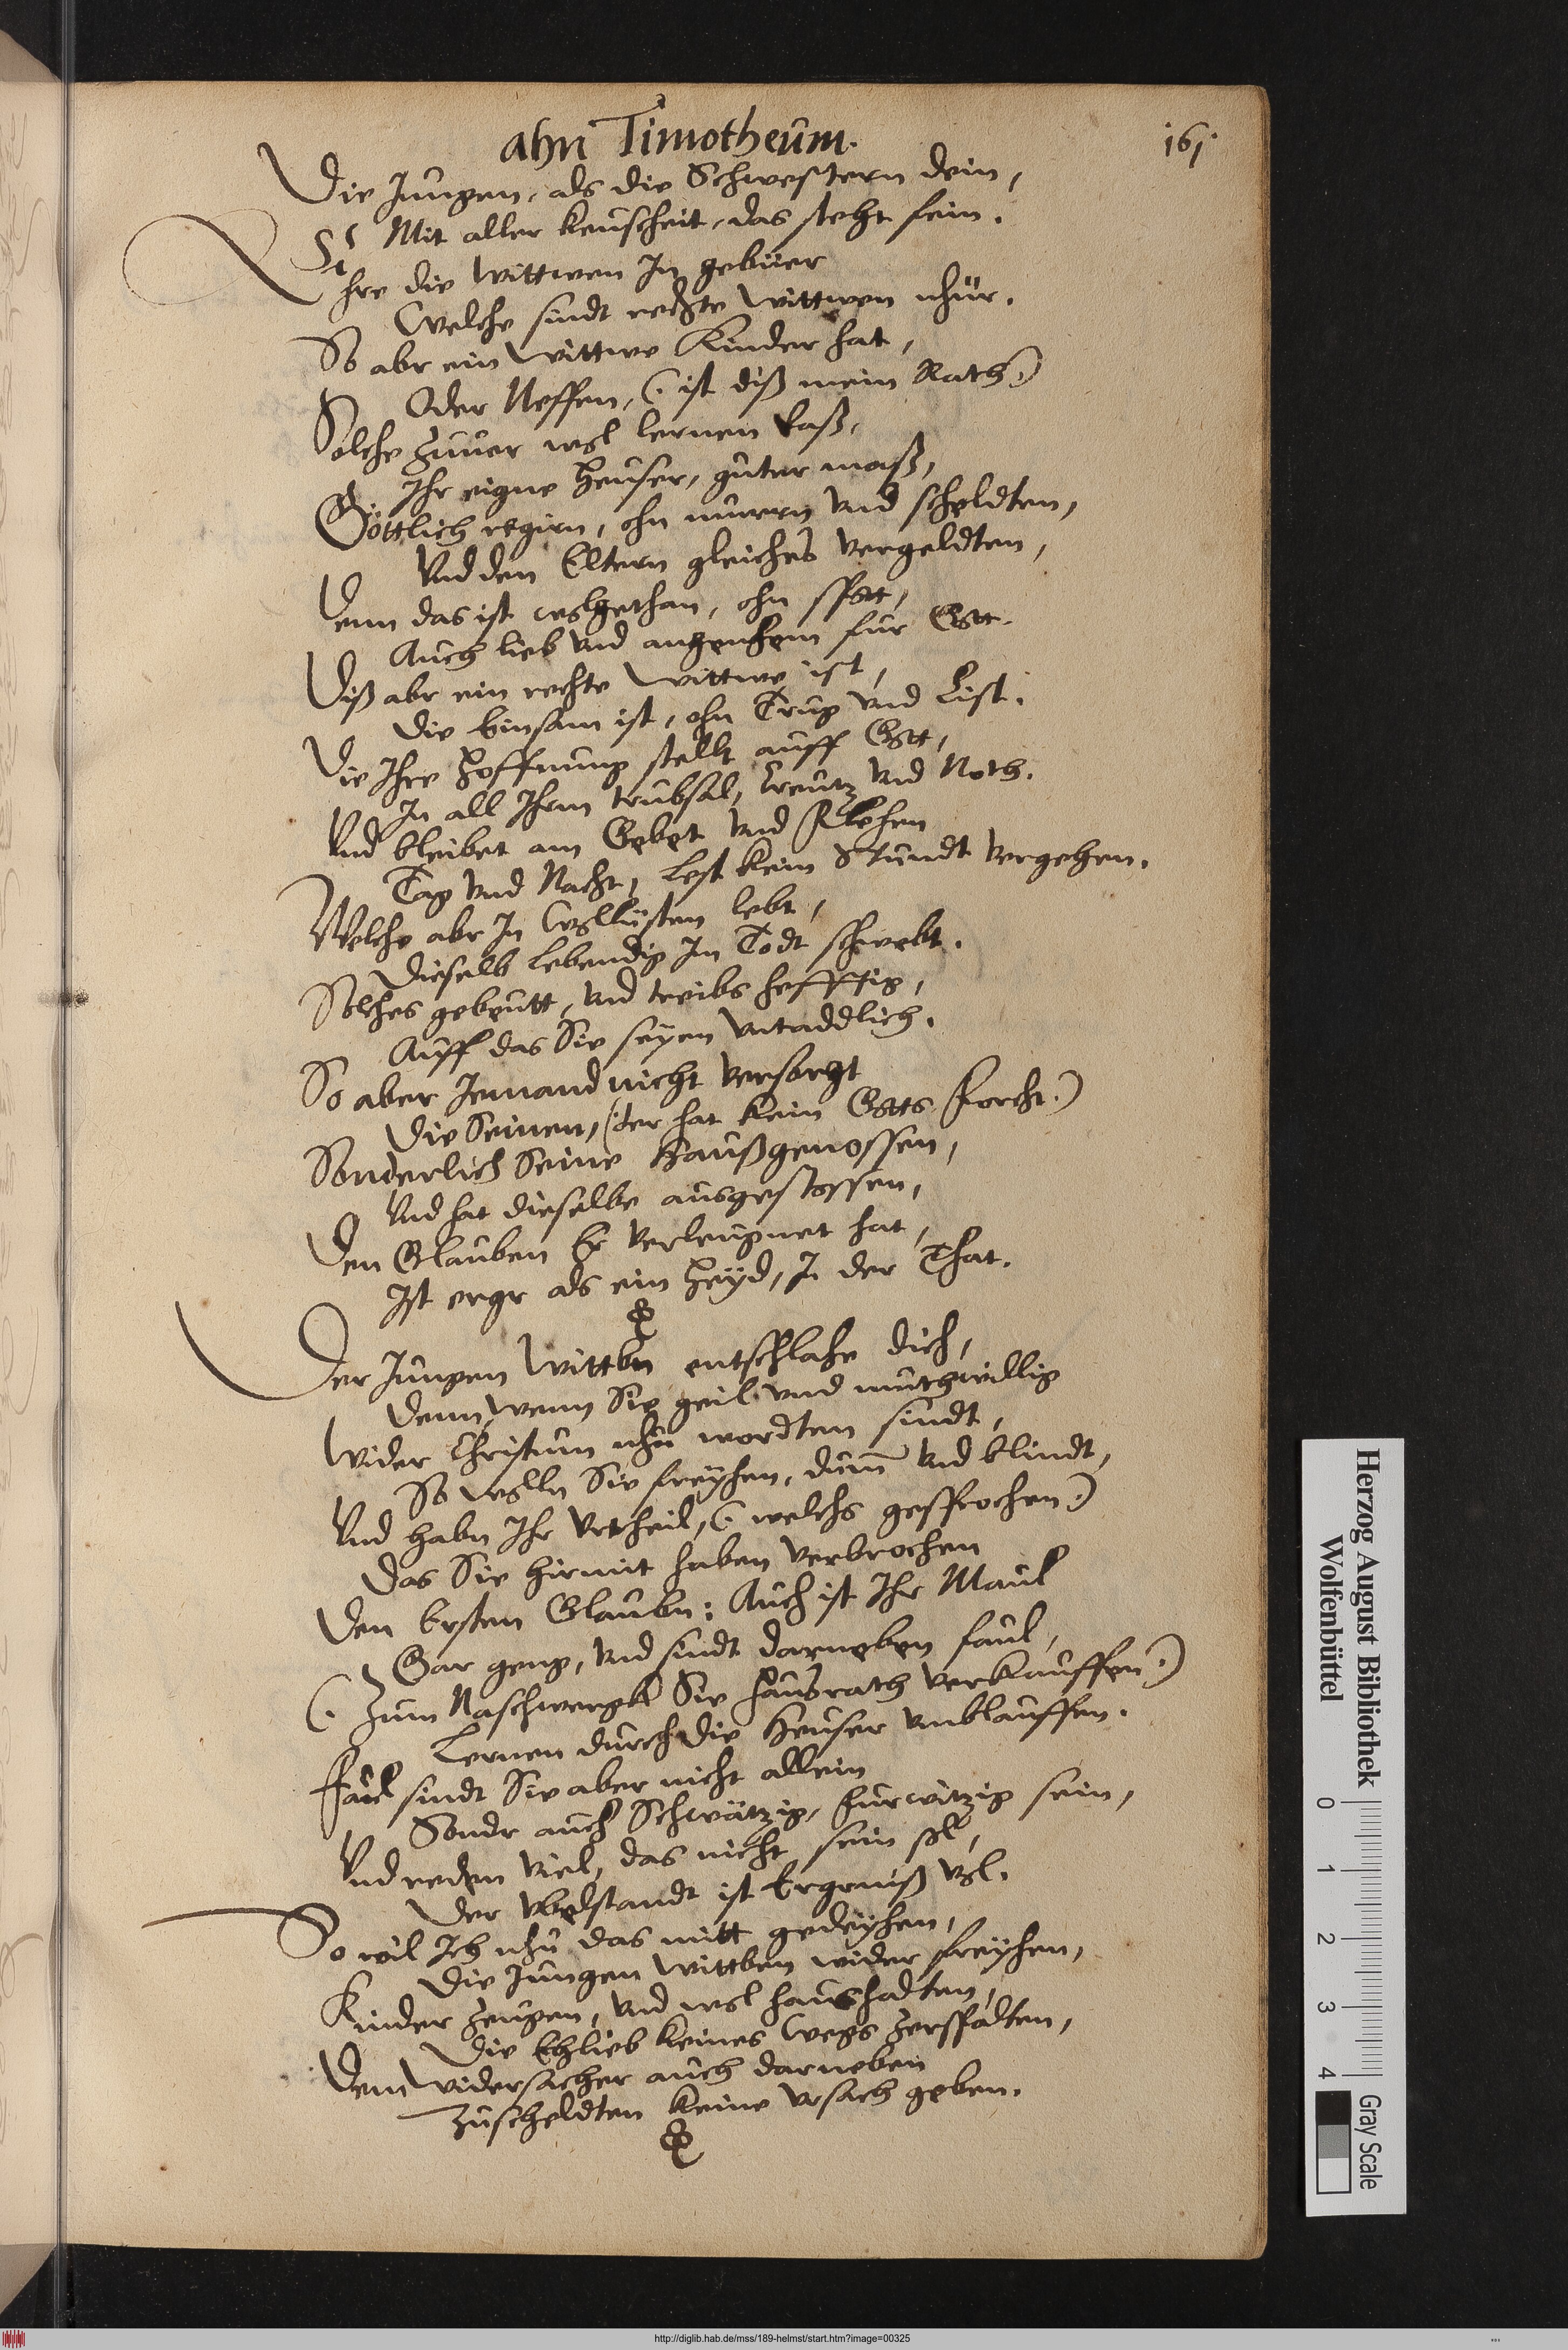 ahn Timotheum.
161
Die Jungen, als die Schwestern dein,
Mit aller keuscheit, das steht fein.
Ehre die Wittwen In gebüer
Welche sindt rechte Wittwen nhür.
So abr ein Wittwe Kinder hat,
Oder Neffen, (: ist diß mein Rath:)
Solche zuuor wol lernen laß,
Ihr eigne Heuser, guter maß,
Göttlich regirn, ohn murrn vnd scheldten,
Vnd den Eltern gleiches vergeldten,
Denn das ist wolgethan, ohn spott,
Auch lieb vnd angenhem fur Gott.
Diß abr ein rechte Wittwe ist,
Die Einsam ist, ohn Trug vnd List.
Die Ihre Hoffnung stellt auff Gott,
In all Ihrm trubsal, Creutz vnd Noth.
Vnd bleibet am Gebet vnd Flehen
Tag vnd Nacht, Lest kein Stundt vergehen.
Welche abr In Wollüsten lebt,
Dieselb lebendig Im Todt schwebt.
Solches gebeutt, vnd treibs hefftig,
Auff das Sie seyen vntaddlich.
So aber Jemand nicht versorgt
Die Seinen, (:der hat kein Gotts Forcht:)
Sonderlich Seine Haußgenossen,
Vnd hat dieselbe ausgestossen,
Den Glauben Er verleugnet hat,
Ist ergr als ein Heyd, In der That.
Der Jungen Wittbn entschlahe dich,
Denn, wenn Sie geil vnd muthwillig
Wider Christum nhu wordten sindt,
So wolln Sie freyhen, dum vnd blindt,
Vnd habn Ihr Vrtheil, (: welchs gesprochen:)
Das Sie hirmit haben verbrochen
Den Ersten Glaubn: Auch ist Ihr Maul
Gar geng, vnd sindt darneben faul,
(: Zum Naschwergk Sie Hausrath verkauffen:)
Lernen durch die Heuser vmblauffen.
Faul sindt Sie aber nicht allein
Sondr auch Schwätzig, furwitzig sein,
Vnd reden viel, das nicht sein sol,
Der Vbelstandt ist Ergrniß vol.
So wil Ich nhu das mitt gedeyhen,
Die Jungen Wittben wider freyhen,
Kinder zeugen, vnd wol haushadten,
Die Ehlieb keines Wegs zerspalten,
Dem Widersacher auch darneben
Zuscheldten keine Vrsach geben.
Herzog August Bibliothek
Wolfenbüttel
0 1 2 3 4
Gray Scale
http://diglib.hab.de/mss/189-helmst/start.htm?image=00325